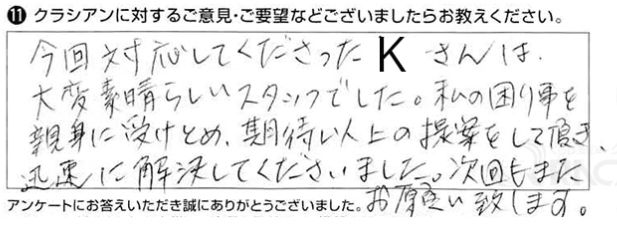 ⓫ クラシアンに対するご意見・ご要望などございましたらお教えください。
今回対応してくださった K さんは、
大変素晴らしいスタッフでした。私の困り事を
親身に受けとめ、期待以上の提案をして頂き、
迅速に解決してくださいました。次回もまた
お願い致します。
アンケートにお答えいただき誠にありがとうございました。